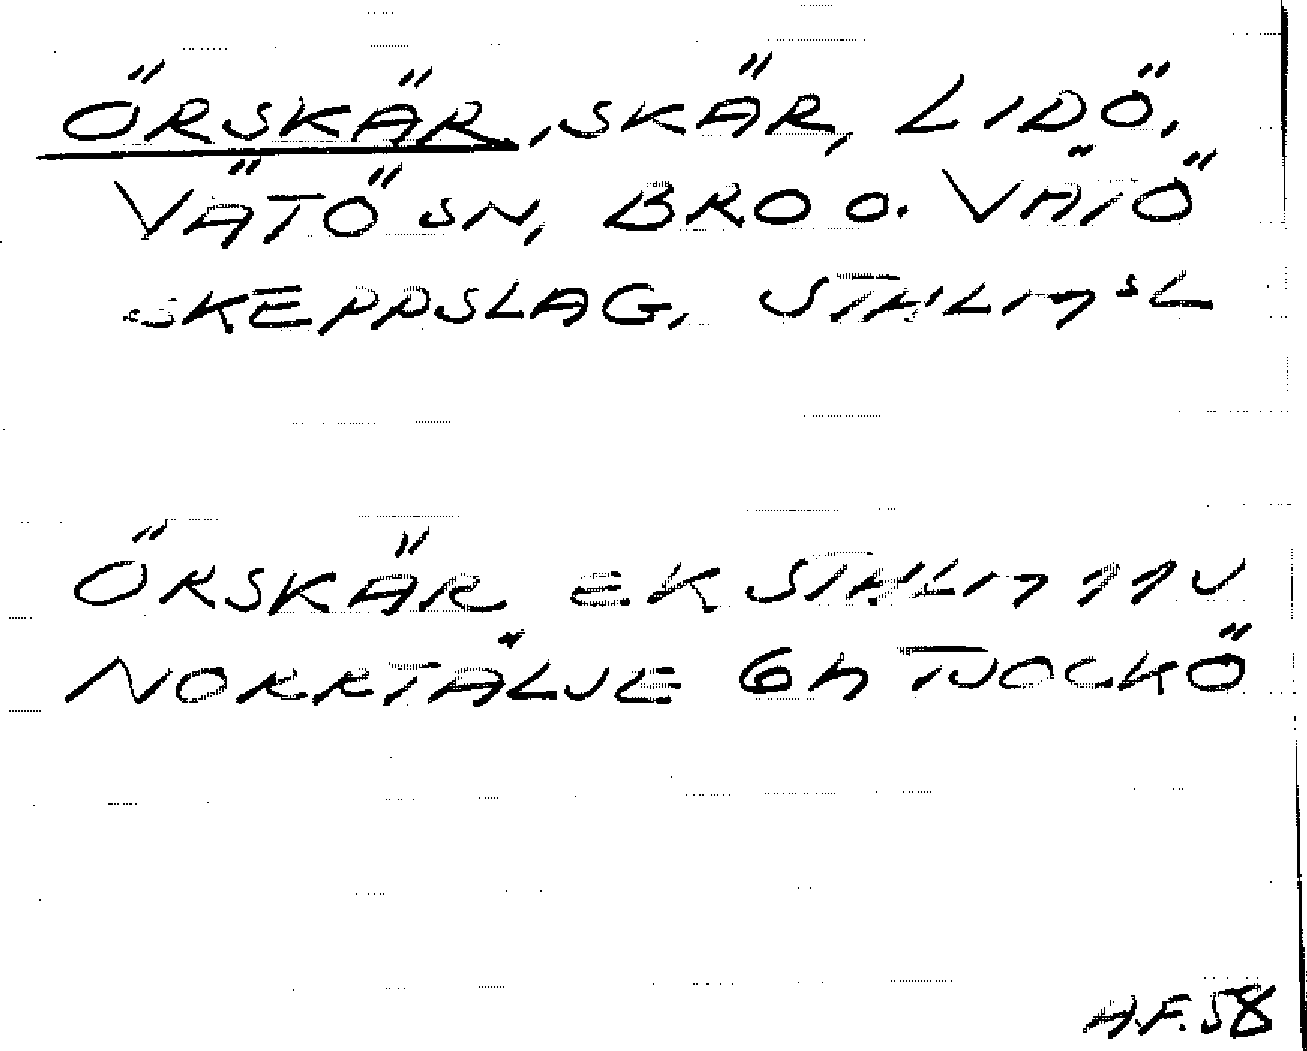 ÖRSKÄR, SKÄR, LIDÖ,
VÄTÖ SN, BRO O. VÄTÖ
SKEPPSLAG, STHLMSL
ÖRSKÄR EK STHLM 11 V
NORRTÄLJE 6h TJOCKÖ
A.F. 58